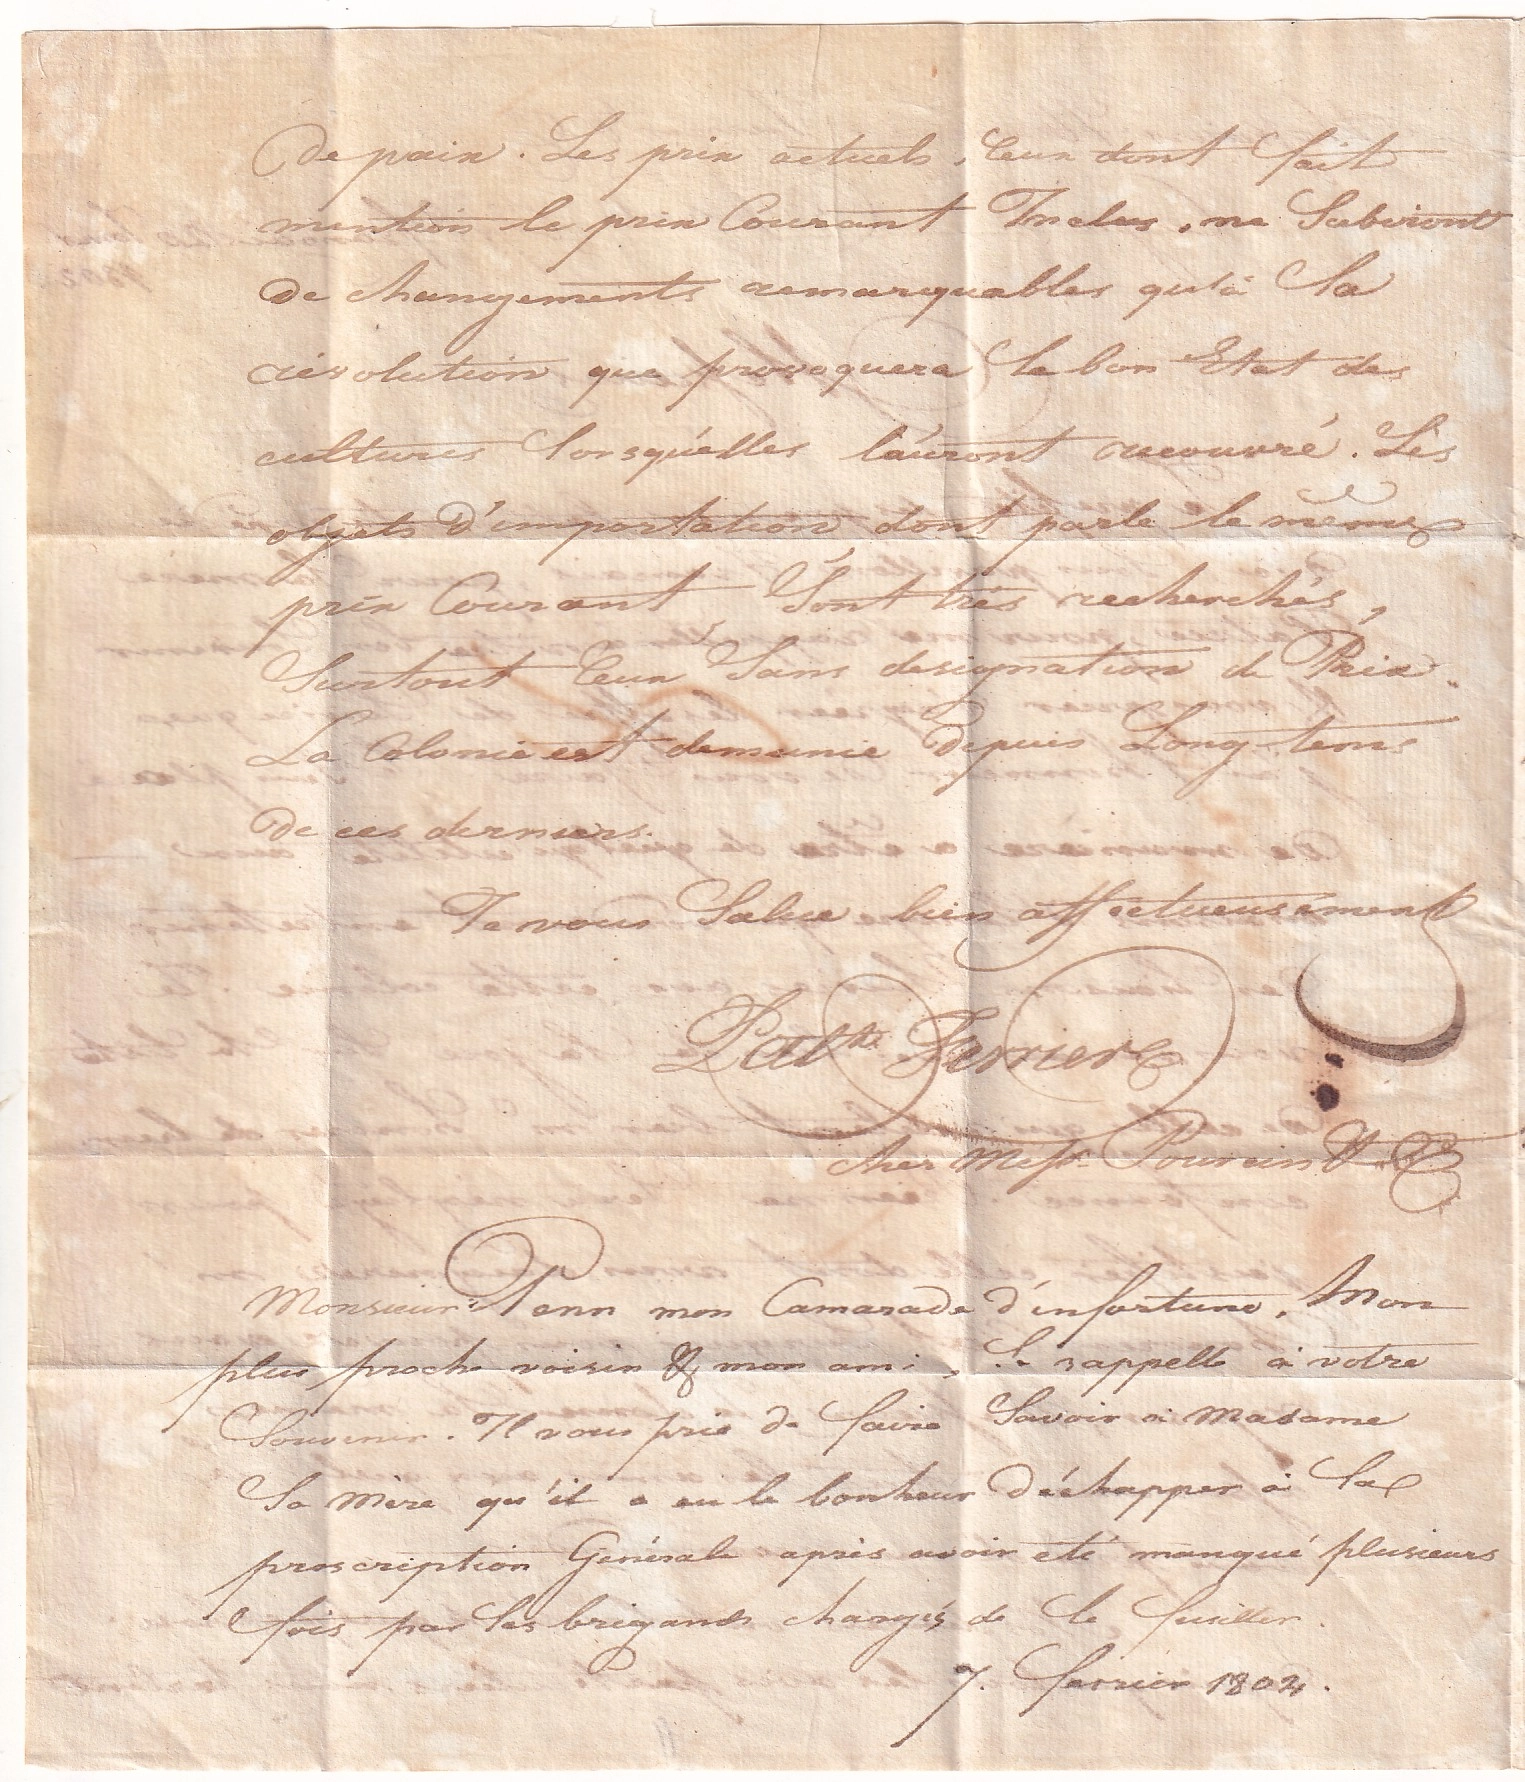 de pain. Les prix actuels, Ceux dont fait
mention le prix Courant Inclus, ne Subiront
de changements remarquables qu'à la
révolution que provoquera le bon Etat des
cultures lorsqu'elles l'auront recouvré. Les
objets d'importation dont parle le même
prix Courant Sont très recherchés,
Surtout Ceux Sans designation de Prix.
La Colonie est demunie depuis Long-tems
de ces derniers.
Je vous Salue bien affectueusement
Ferrier
chez Messrs. Pourcin & Ce
Monsieur Penn mon Camarade d'infortune, Mon
plus proche voisin & mon ami, Se rappelle à votre
Souvenir. Il vous prie de faire Savoir à Madame
Sa Mère qu'il a eu le bonheur d'échapper à la
proscription Générale après avoir eté manqué plusieurs
fois par les brigands chargés de le fusiller.
7. fevrier 1802.